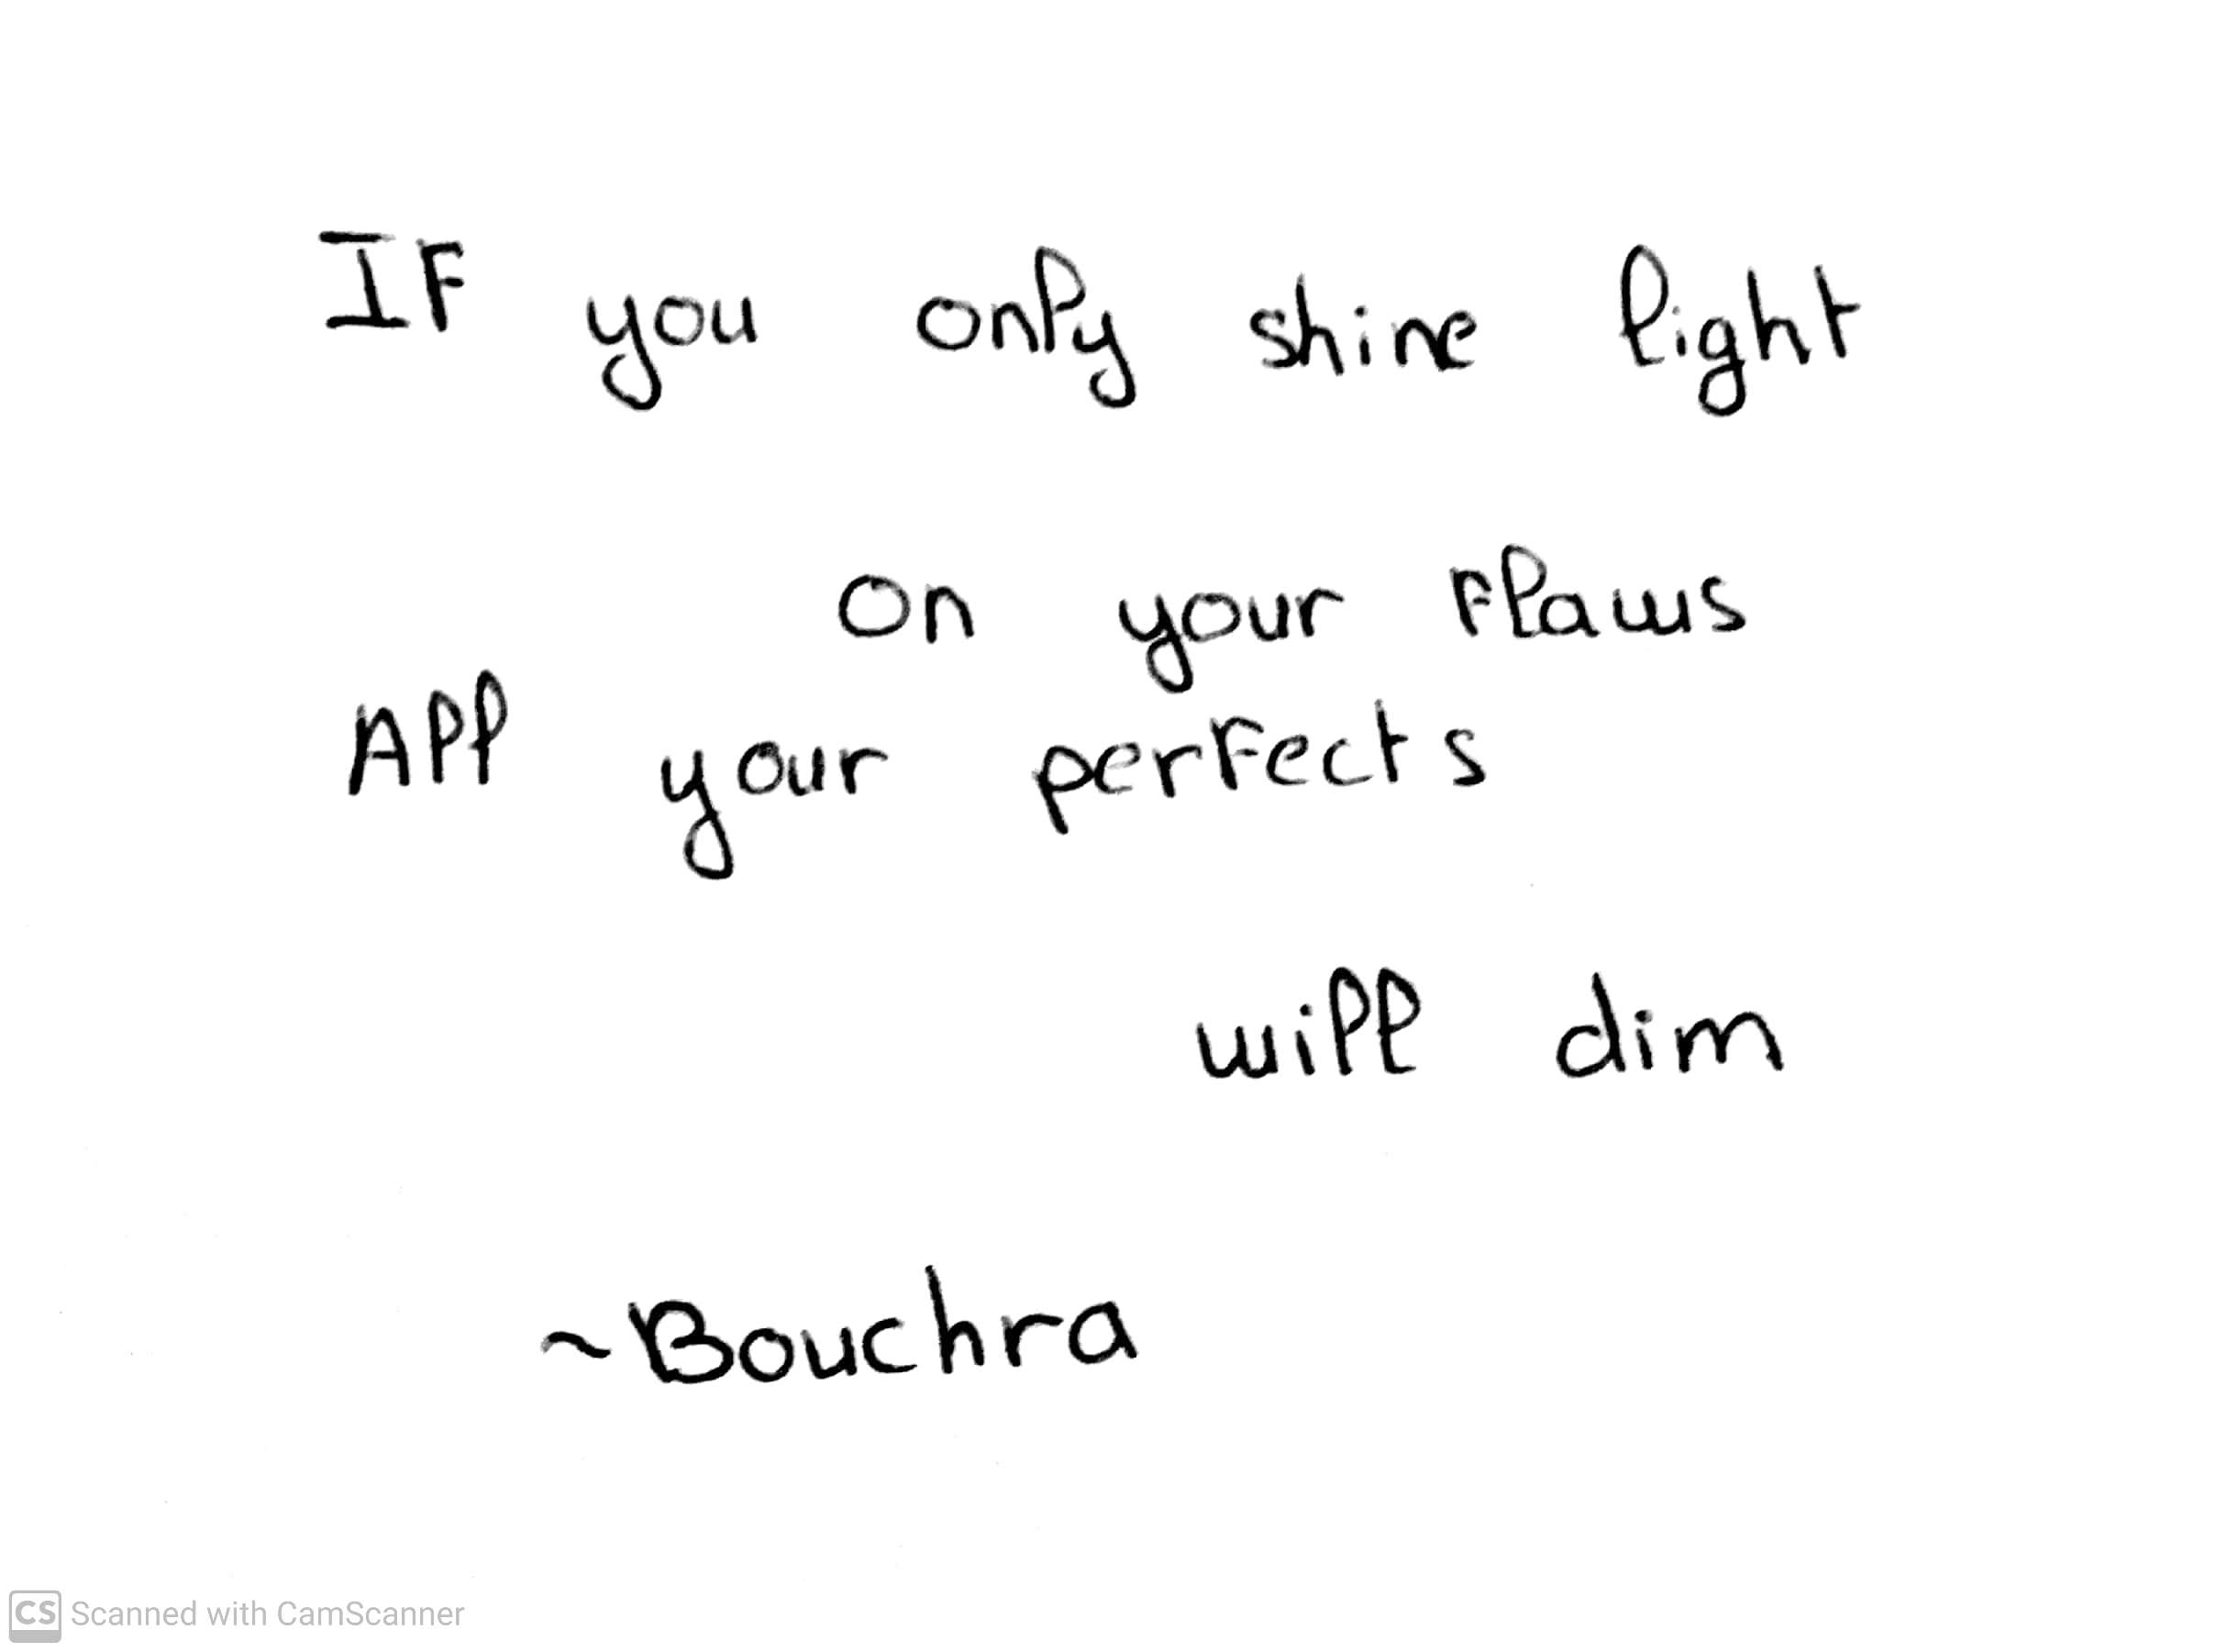 If you only shine light
on your flaws
All your perfects
will dim
~Bouchra
CS Scanned with CamScanner